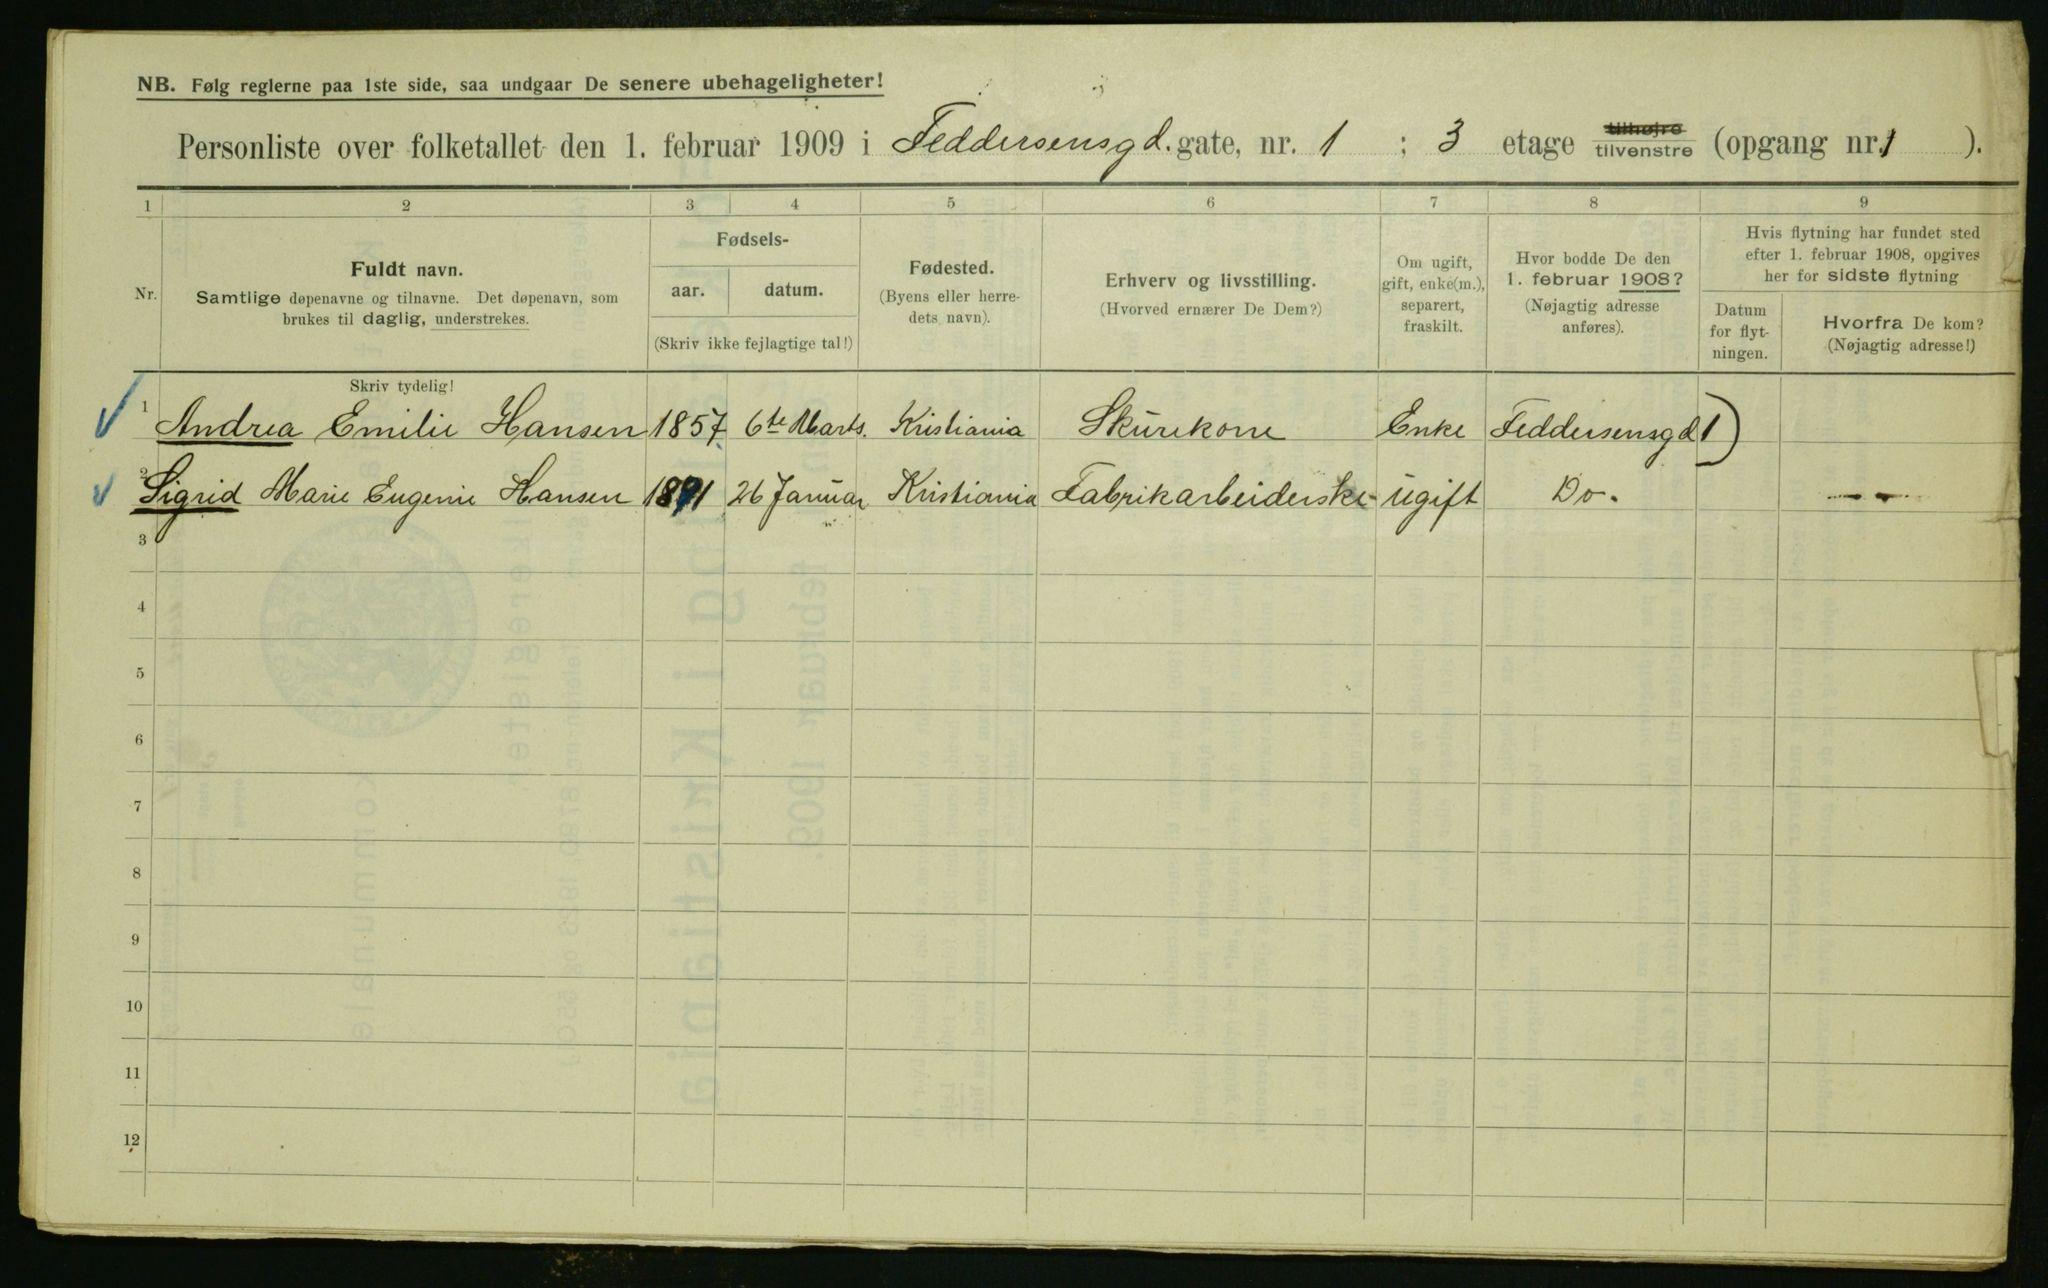 NB. Følg reglerne paa 1ste side, saa undgaar De senere ubehageligheter!
Personliste over folketallet den 1. februar 1909 i Feddersensgd. gate, nr. 1 ; 3 etage tilhøjre tilvenstre (opgang nr. 1 ).
1 2 3 4 5 6 7 8 9
Nr.
Fuldt navn.
Samtlige døpenavne og tilnavne. Det døpenavn, som
brukes til daglig, understrekes.
Fødsels-
aar. datum.
(Skriv ikke fejlagtige tal!)
Fødested.
(Byens eller herre-
dets navn).
Erhverv og livsstilling.
(Hvorved ernærer De Dem?)
Om ugift,
gift, enke(m.),
separert,
fraskilt.
Hvor bodde De den
1. februar 1908?
(Nøjagtig adresse
anføres).
Hvis flytning har fundet sted
efter 1. februar 1908, opgives
her for sidste flytning
Datum
for flyt-
ningen.
Hvorfra De kom?
(Nøjagtig adresse!)
Skriv tydelig!
1 Andrea Emilie Hansen 1857 6te Marts. Kristiania Skurekone Enke Feddersensgd 1)
2 Sigrid Marie Eugenie Hansen 1891 26 Januar Kristiania Fabrikarbeiderske ugift Do.
3
4
5
6
7
8
9
10
11
12